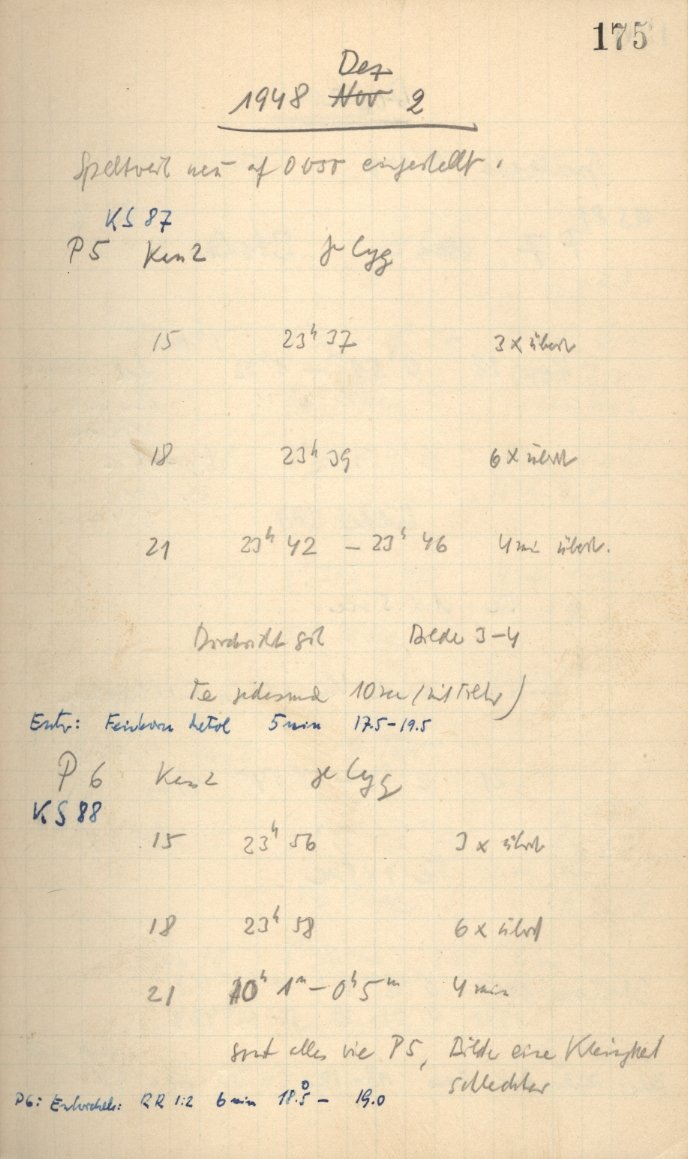 175
Dez
1948 Nov 2
neu auf 0 eingestellt.
KS 87
P5 Ken2 γ Cyg
15 23h 37 3 x übert
18 23h 39 6 x übert
21 23h 42 - 23h 46 4 min übert.
Durchsicht gut Bilder 3-4
jedesmal 10
Entw: Feinkorn Metol 5 min 17.5-19.5
P 6 Ken2 γ Cyg
KS 88
15 23h 56 3 x übert
18 23h 58 6 x übert
21 0h 1m - 0h 5m 4 min
sonst alles wie P5, Bilder eine Kleinigkeit
schlechter
P6: Entwickelt: RR 1:2 6 min 18.5° - 19.0